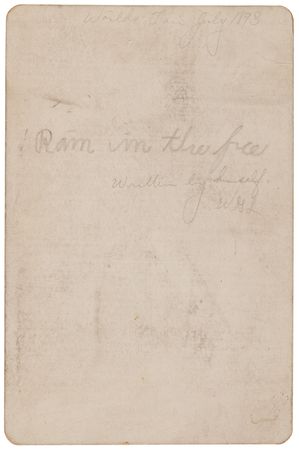 Worlds Fair July 1893
Rain in the face
Written by himself.